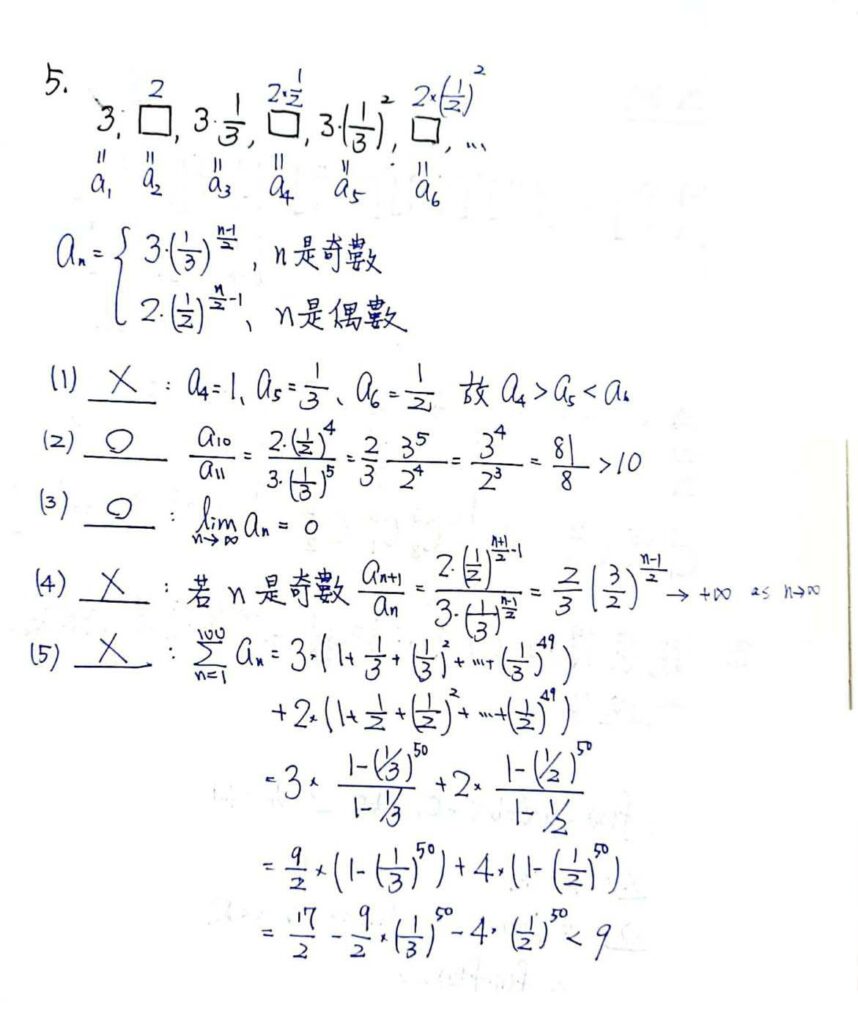 5.
2 2×1/2 2×(1/2)^2
3, □, 3·1/3, □, 3·(1/3)^2, □, ...
= = = = = =
a_1 a_2 a_3 a_4 a_5 a_6
a_n = { 3·(1/3)^((n-1)/2), n是奇數
2·(1/2)^(n/2-1)、n是偶數
(1) X : a_4=1、a_5=1/3、a_6=1/2 故 a_4>a_5<a_6
(2) O a_10/a_11 = 2·(1/2)^4/3·(1/3)^5 = 2/3 · 3^5/2^4 = 3^4/2^3 = 81/8 >10
(3) O : lim n→∞ a_n = 0
(4) X : 若 n 是奇數 a_(n+1)/a_n = 2·(1/2)^((n+1)/2-1)/3·(1/3)^((n-1)/2) = 2/3 (3/2)^((n-1)/2) → +∞ as n→∞
(5) X : Σ_(n=1)^100 a_n = 3×(1+1/3+(1/3)^2+...+(1/3)^49)
+2×(1+1/2+(1/2)^2+...+(1/2)^49)
= 3× 1-(1/3)^50/1-1/3 +2× 1-(1/2)^50/1-1/2
= 9/2×(1-(1/3)^50)+4×(1-(1/2)^50)
= 17/2 - 9/2×(1/3)^50 - 4×(1/2)^50 < 9